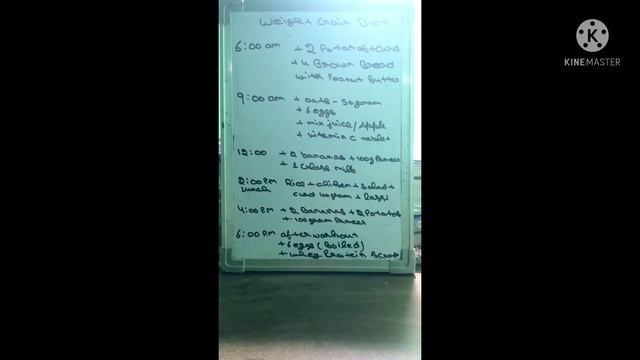 Weight Gain Diet
6:00 am + 2 Potatos + Curd
+ 4 Brown Bread
with Peanut Butter
9:00 am + oats - 50gram
+ 6 eggs
+ mix juice / Apple
+ vitamin C tablet
12:00 + 2 bananas + 100g Paneer
+ 1 Glass milk
2:00 P.M Rice + chicken + Salad +
Lunch curd 100gram + lassi
4:00 P.M + 2 Bananas + 2 Potatos
+ 100gram Paneer
6:00 P.M after workout
+ 6 eggs (Boiled)
+ whey Protein Scoop
KINEMASTER